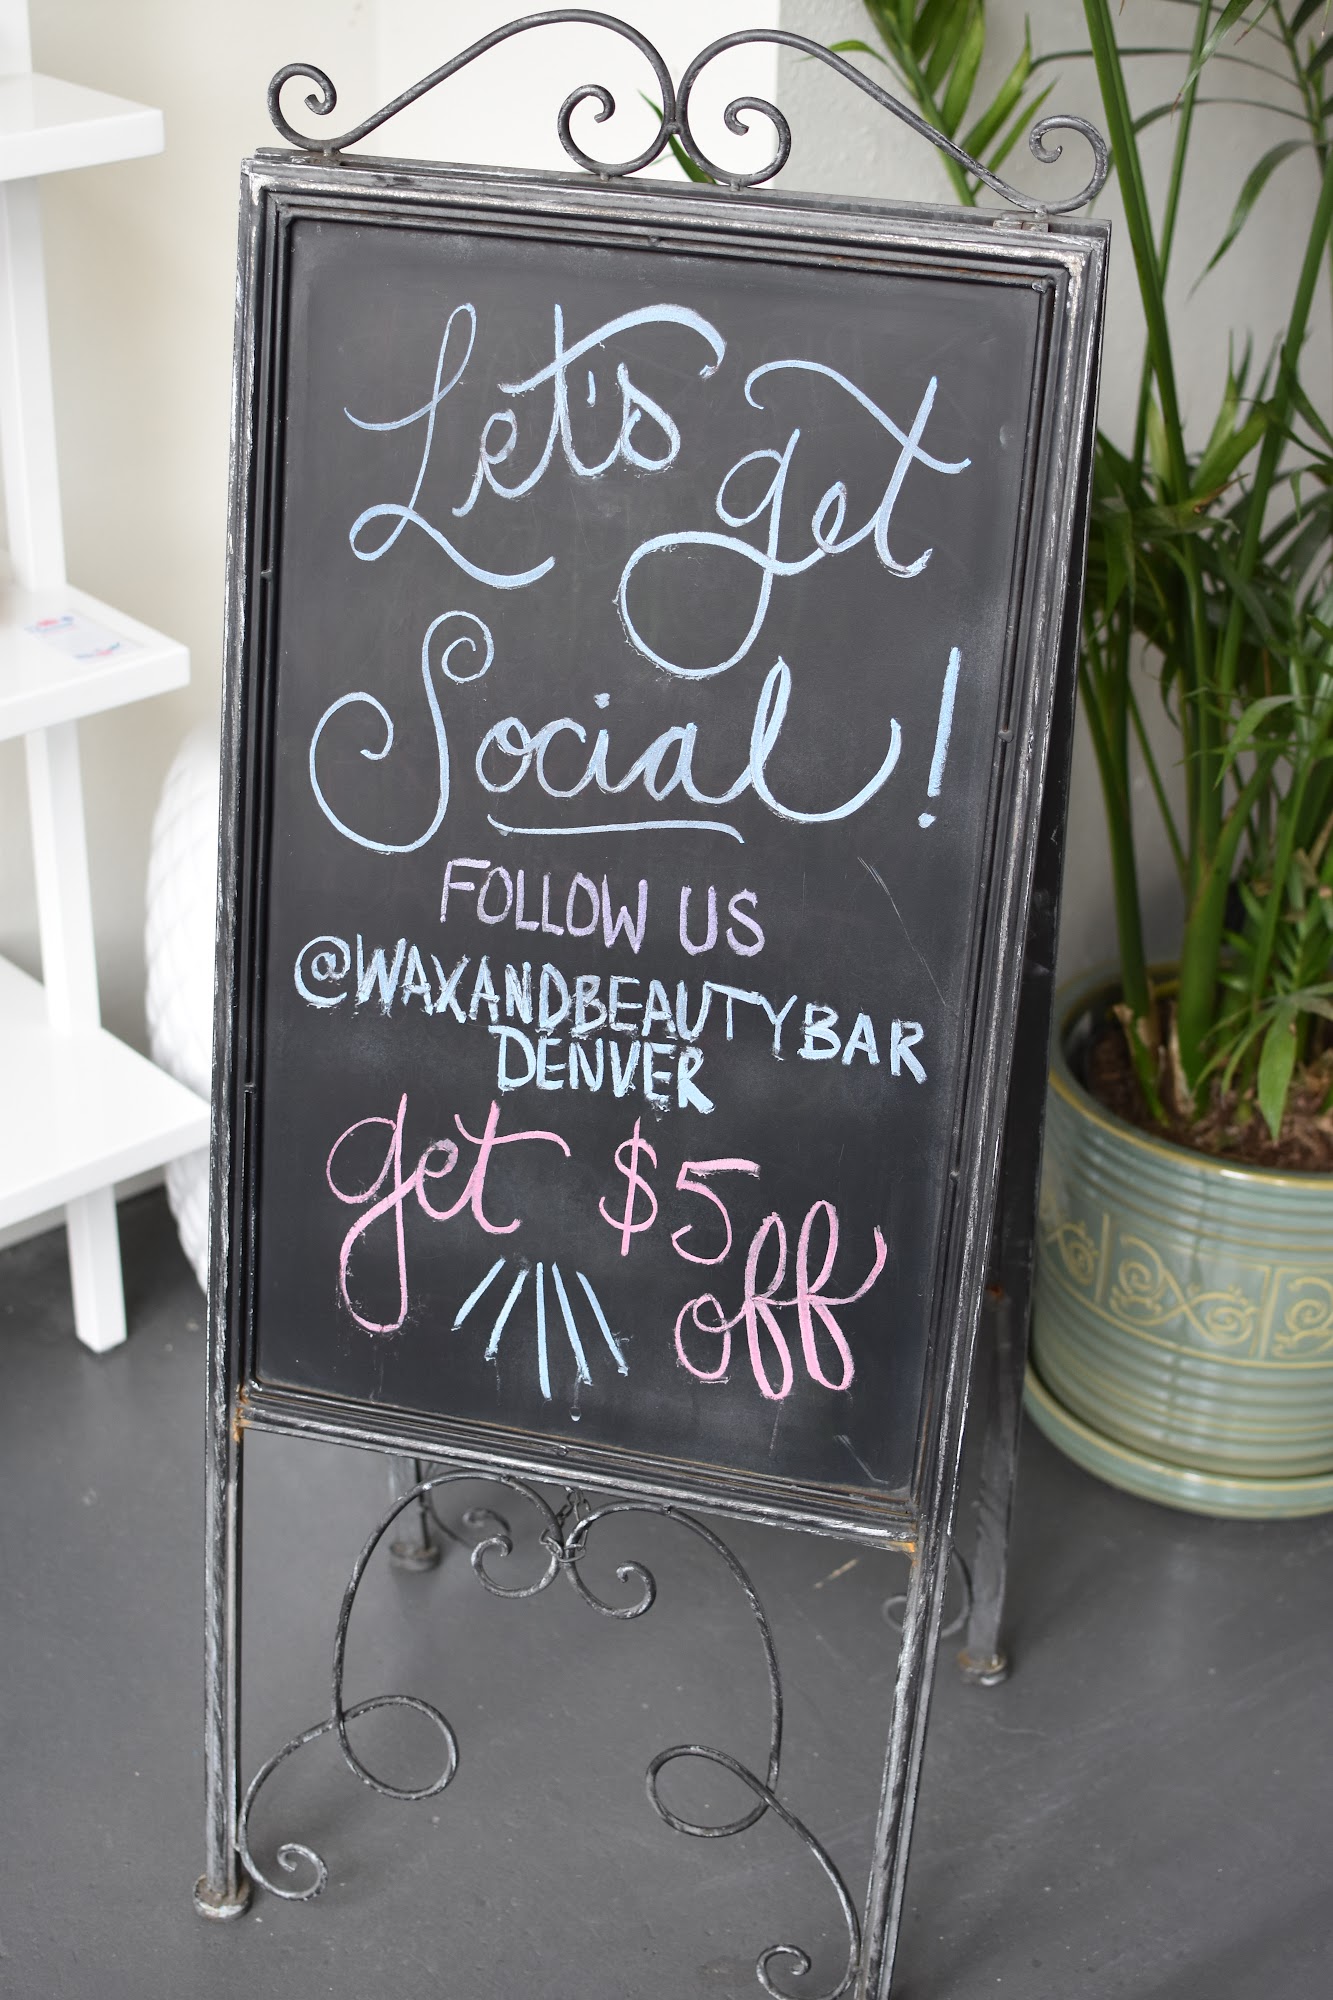 Let's get
Social!
FOLLOW US
@WAXANDBEAUTYBAR
DENVER
get $5
off